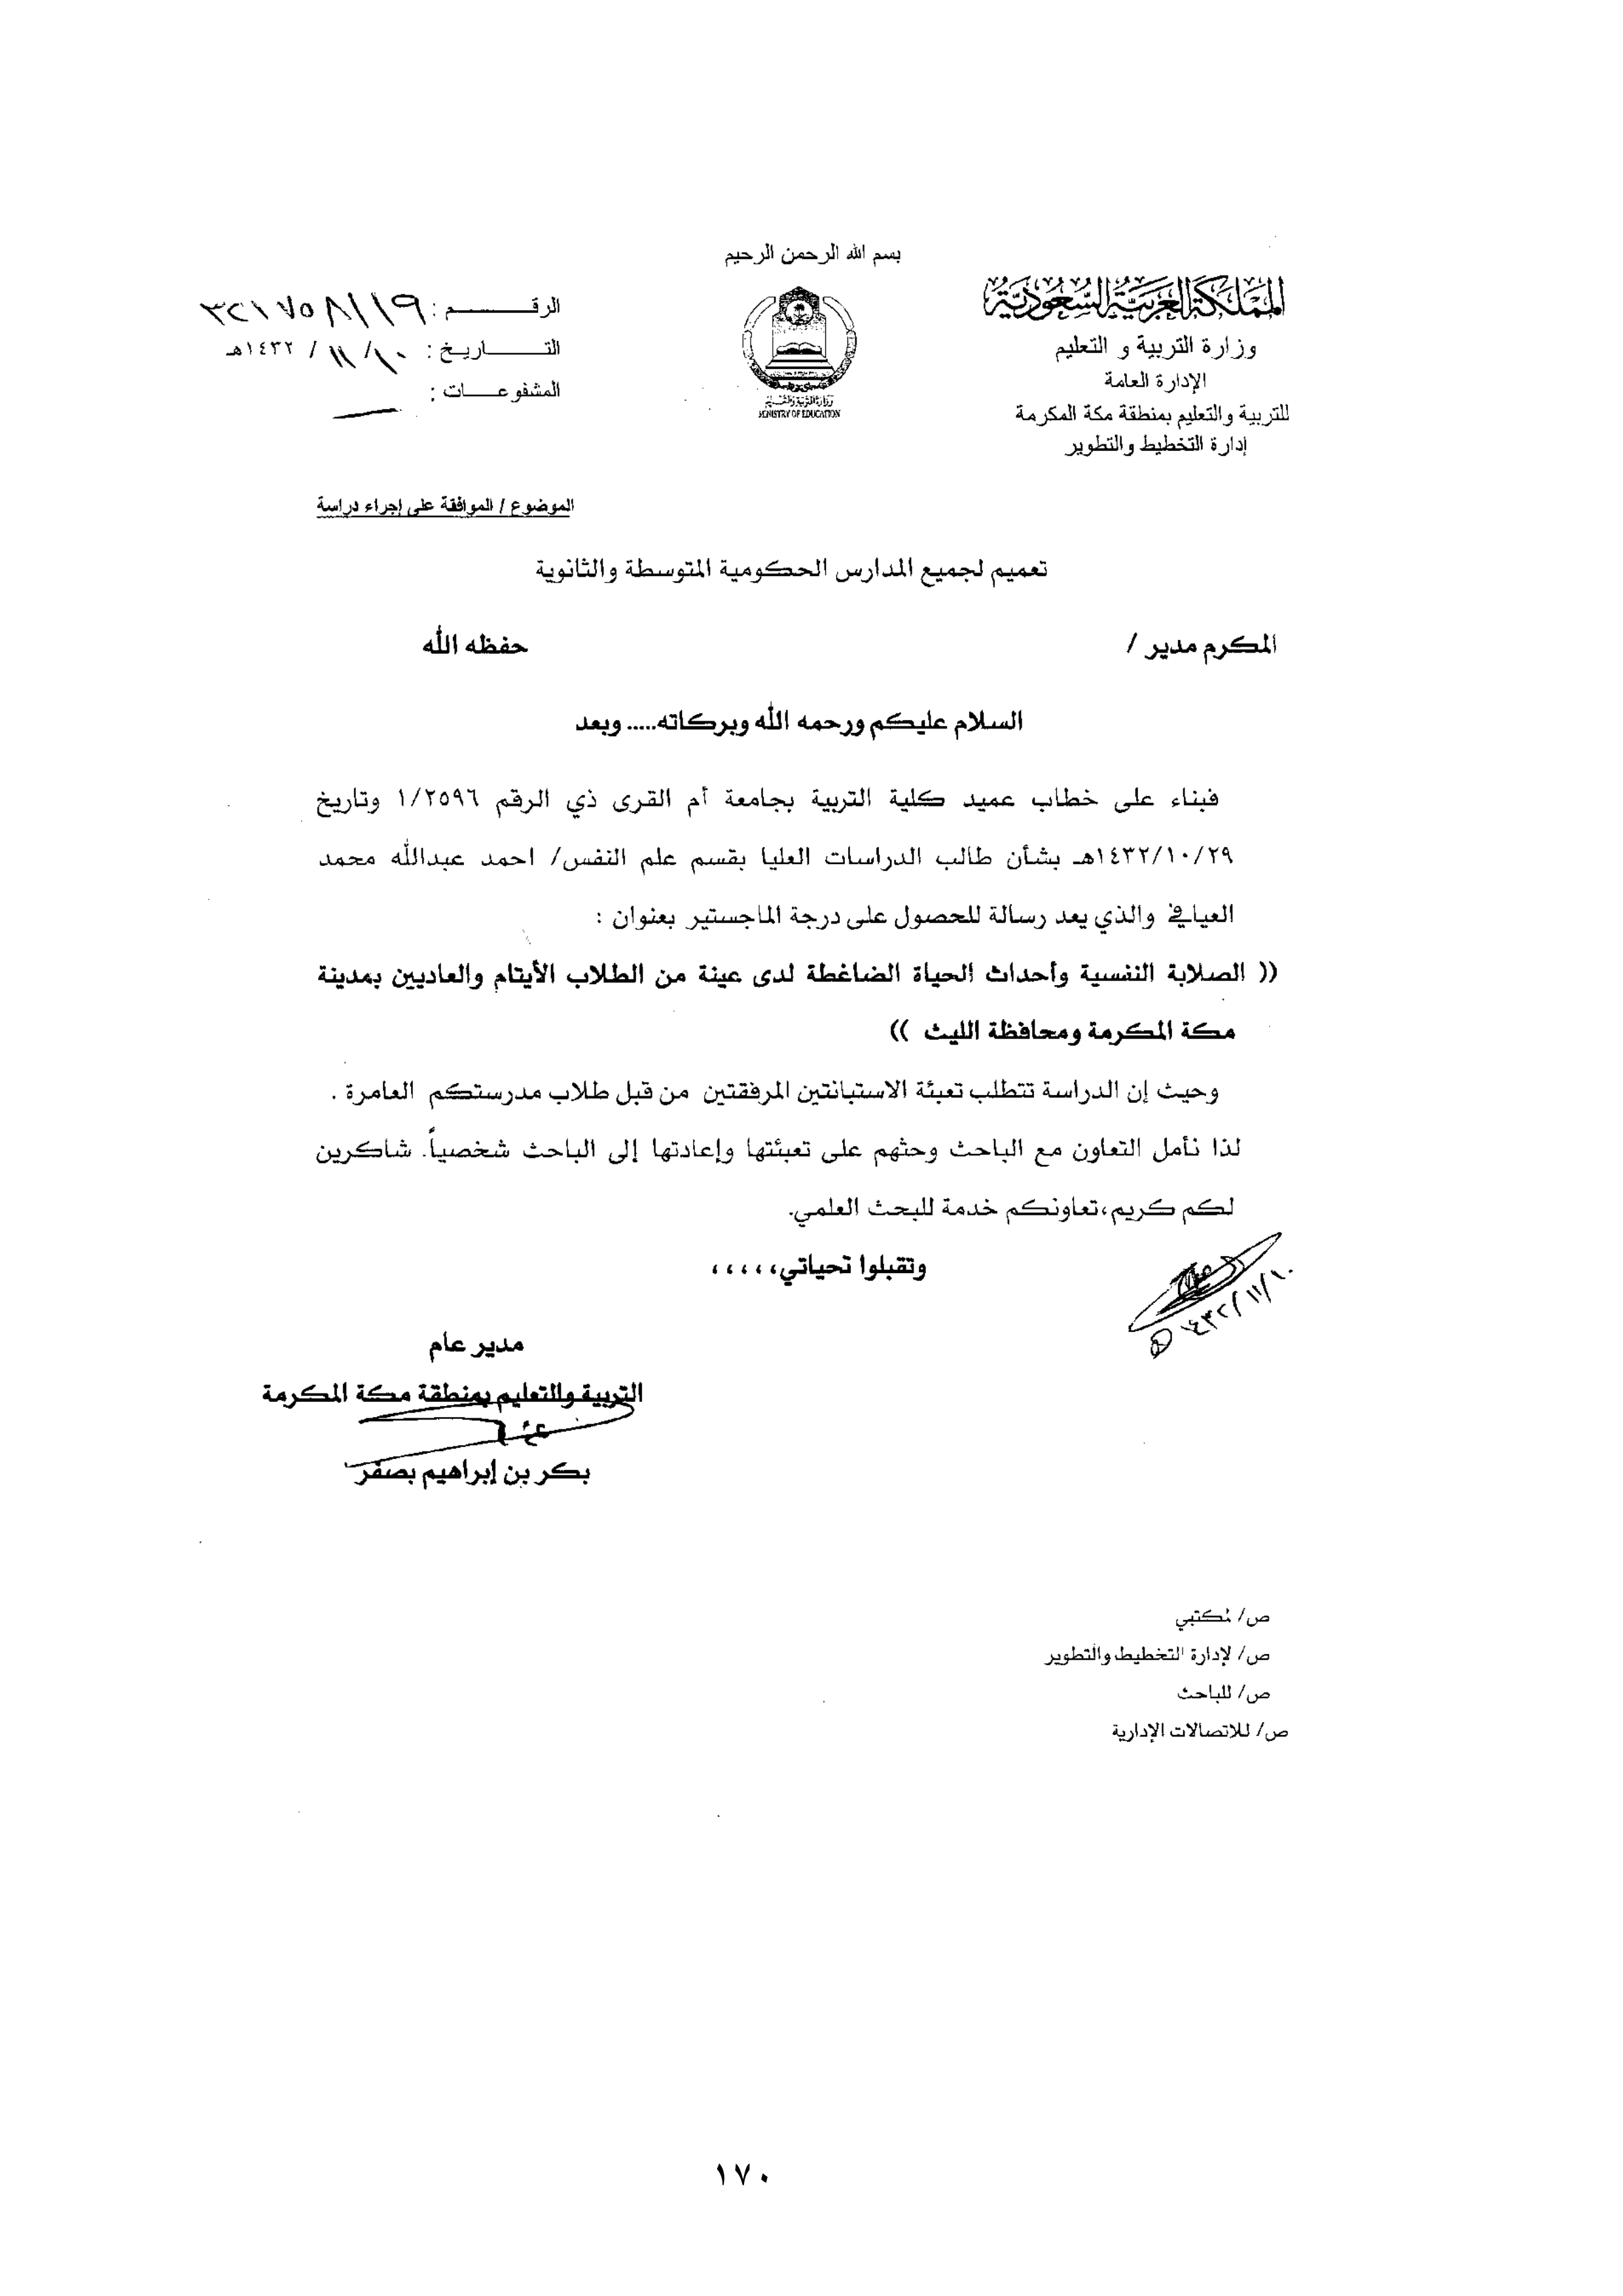 بسم الله الرحمن الرحيم
المملكة العربية السعودية
وزارة التربية و التعليم
الإدارة العامة
للتربية والتعليم بمنطقة مكة المكرمة
إدارة التخطيط والتطوير
وزارة التربية والتعليم
MINISTRY OF EDUCATION
الرقـــــــم : ٣٢١٧٥٨١١٩
التـــــاريخ : ١٠/ ١١ / ١٤٣٢هـ
المشفوعـــات :
الموضوع / الموافقة على إجراء دراسة
تعميم لجميع المدارس الحكومية المتوسطة والثانوية
المكرم مدير / حفظه الله
السلام عليكم ورحمه الله وبركاته..... وبعد
فبناء على خطاب عميد كلية التربية بجامعة أم القرى ذي الرقم ١/٢٥٩٦ وتاريخ
١٤٣٢/١٠/٢٩هـ بشأن طالب الدراسات العليا بقسم علم النفس/ احمد عبدالله محمد
العيافي والذي يعد رسالة للحصول على درجة الماجستير بعنوان :
(( الصلابة النفسية وأحداث الحياة الضاغطة لدى عينة من الطلاب الأيتام والعاديين بمدينة
مكة المكرمة ومحافظة الليث ))
وحيث إن الدراسة تتطلب تعبئة الاستبانتين المرفقتين من قبل طلاب مدرستكم العامرة .
لذا نأمل التعاون مع الباحث وحثهم على تعبئتها وإعادتها إلى الباحث شخصياً. شاكرين
لكم كريم،تعاونكم خدمة للبحث العلمي.
وتقبلوا تحياتي،،،،،
١٤٣٢/١١/١٠
مدير عام
التربية والتعليم بمنطقة مكة المكرمة
بكر بن إبراهيم بصفر
ص/ لمكتبي
ص/ لإدارة التخطيط والتطوير
ص/ للباحث
ص/ للاتصالات الإدارية
١٧٠